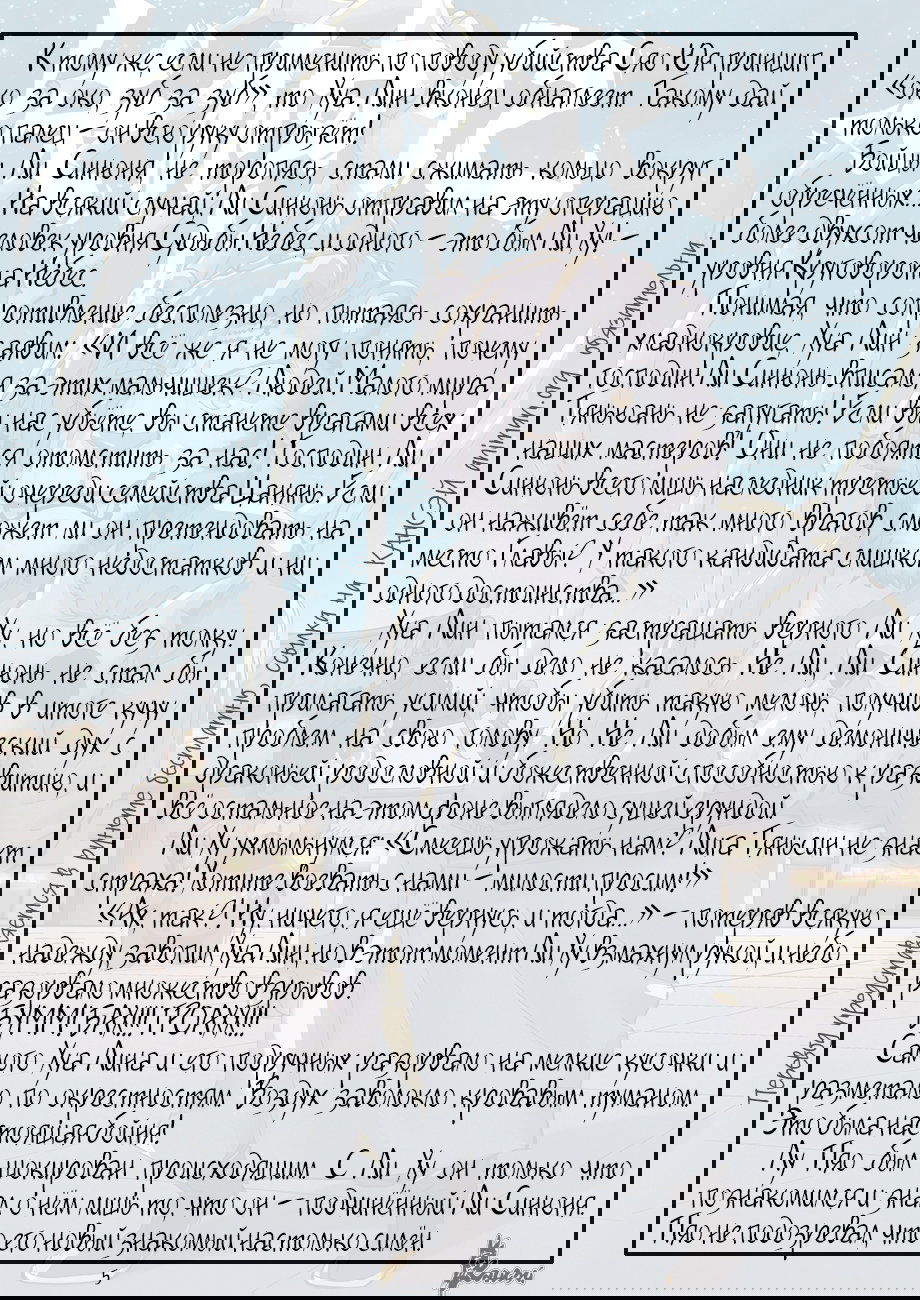 К тому же, если не применить по поводу убийства Сяо Юя принцип
«око за око, зуб за зуб», то Хуа Лин вконец обнаглеет. Такому дай
только палец – он всю руку оторвёт!
Бойцы Ли Синюня не торопясь стали сжимать кольцо вокруг
обречённых... На всякий случай, Ли Синюнь отправил на эту операцию
более двухсот человек уровня Судьбы Небес, и одного – это был Ли Ху! –
уровня Круговорота Небес.
Понимая, что сопротивление бесполезно, но пытаясь сохранить
хладнокровие, Хуа Лин заявил: «И всё же я не могу понять, почему
господин Ли Синюнь вписался за этих мальчишек?! Людей Малого мира
Тяньюань не запугать! Если вы нас убьёте, вы станете врагами всех
наших мастеров! Они не побоятся отомстить за нас! Господин Ли
Синюнь всего лишь наследник третьей очереди семейства Цанянь. Если
он наживёт себе так много врагов, сможет ли он претендовать на
место Главы?.. У такого кандидата слишком много недостатков и ни
одного достоинства...»
Хуа Лин пытался застращать верного Ли Ху, но всё без толку.
Конечно, если бы дело не касалось Не Ли, Ли Синюнь не стал бы
прилагать усилий, чтобы убить такую мелочь, получив в итоге кучу
проблем на свою голову. Но Не Ли добыл ему демонический дух с
драконьей родословной и божественной способностью к развитию, и
всё остальное на этом фоне выглядело сущей ерундой.
Ли Ху ухмыльнулся: «Смеешь угрожать нам?! Лига Тяньсин не знает
страха! Хотите воевать с нами – милости просим!»
«Ах так?! Ну, ничего, я ещё вернусь, и тогда...» – потеряв всякую
надежду завопил Хуа Лин, но в этот момент Ли Ху взмахнул рукой, и небо
разорвало множество взрывов.
БУМММ! БАХ!!! ГРОАХХ!!!
Самого Хуа Лина и его подручных разорвало на мелкие кусочки и
разметало по окрестностям. Воздух заволокло кровавым туманом.
Это была настоящая бойня!
Лу Пяо был шокирован происходящим. С Ли Ху он только что
познакомился и знал о нём лишь то, что он – подчинённый Ли Синюня.
Пяо не подозревал, что его новый знакомый настолько силён.
5